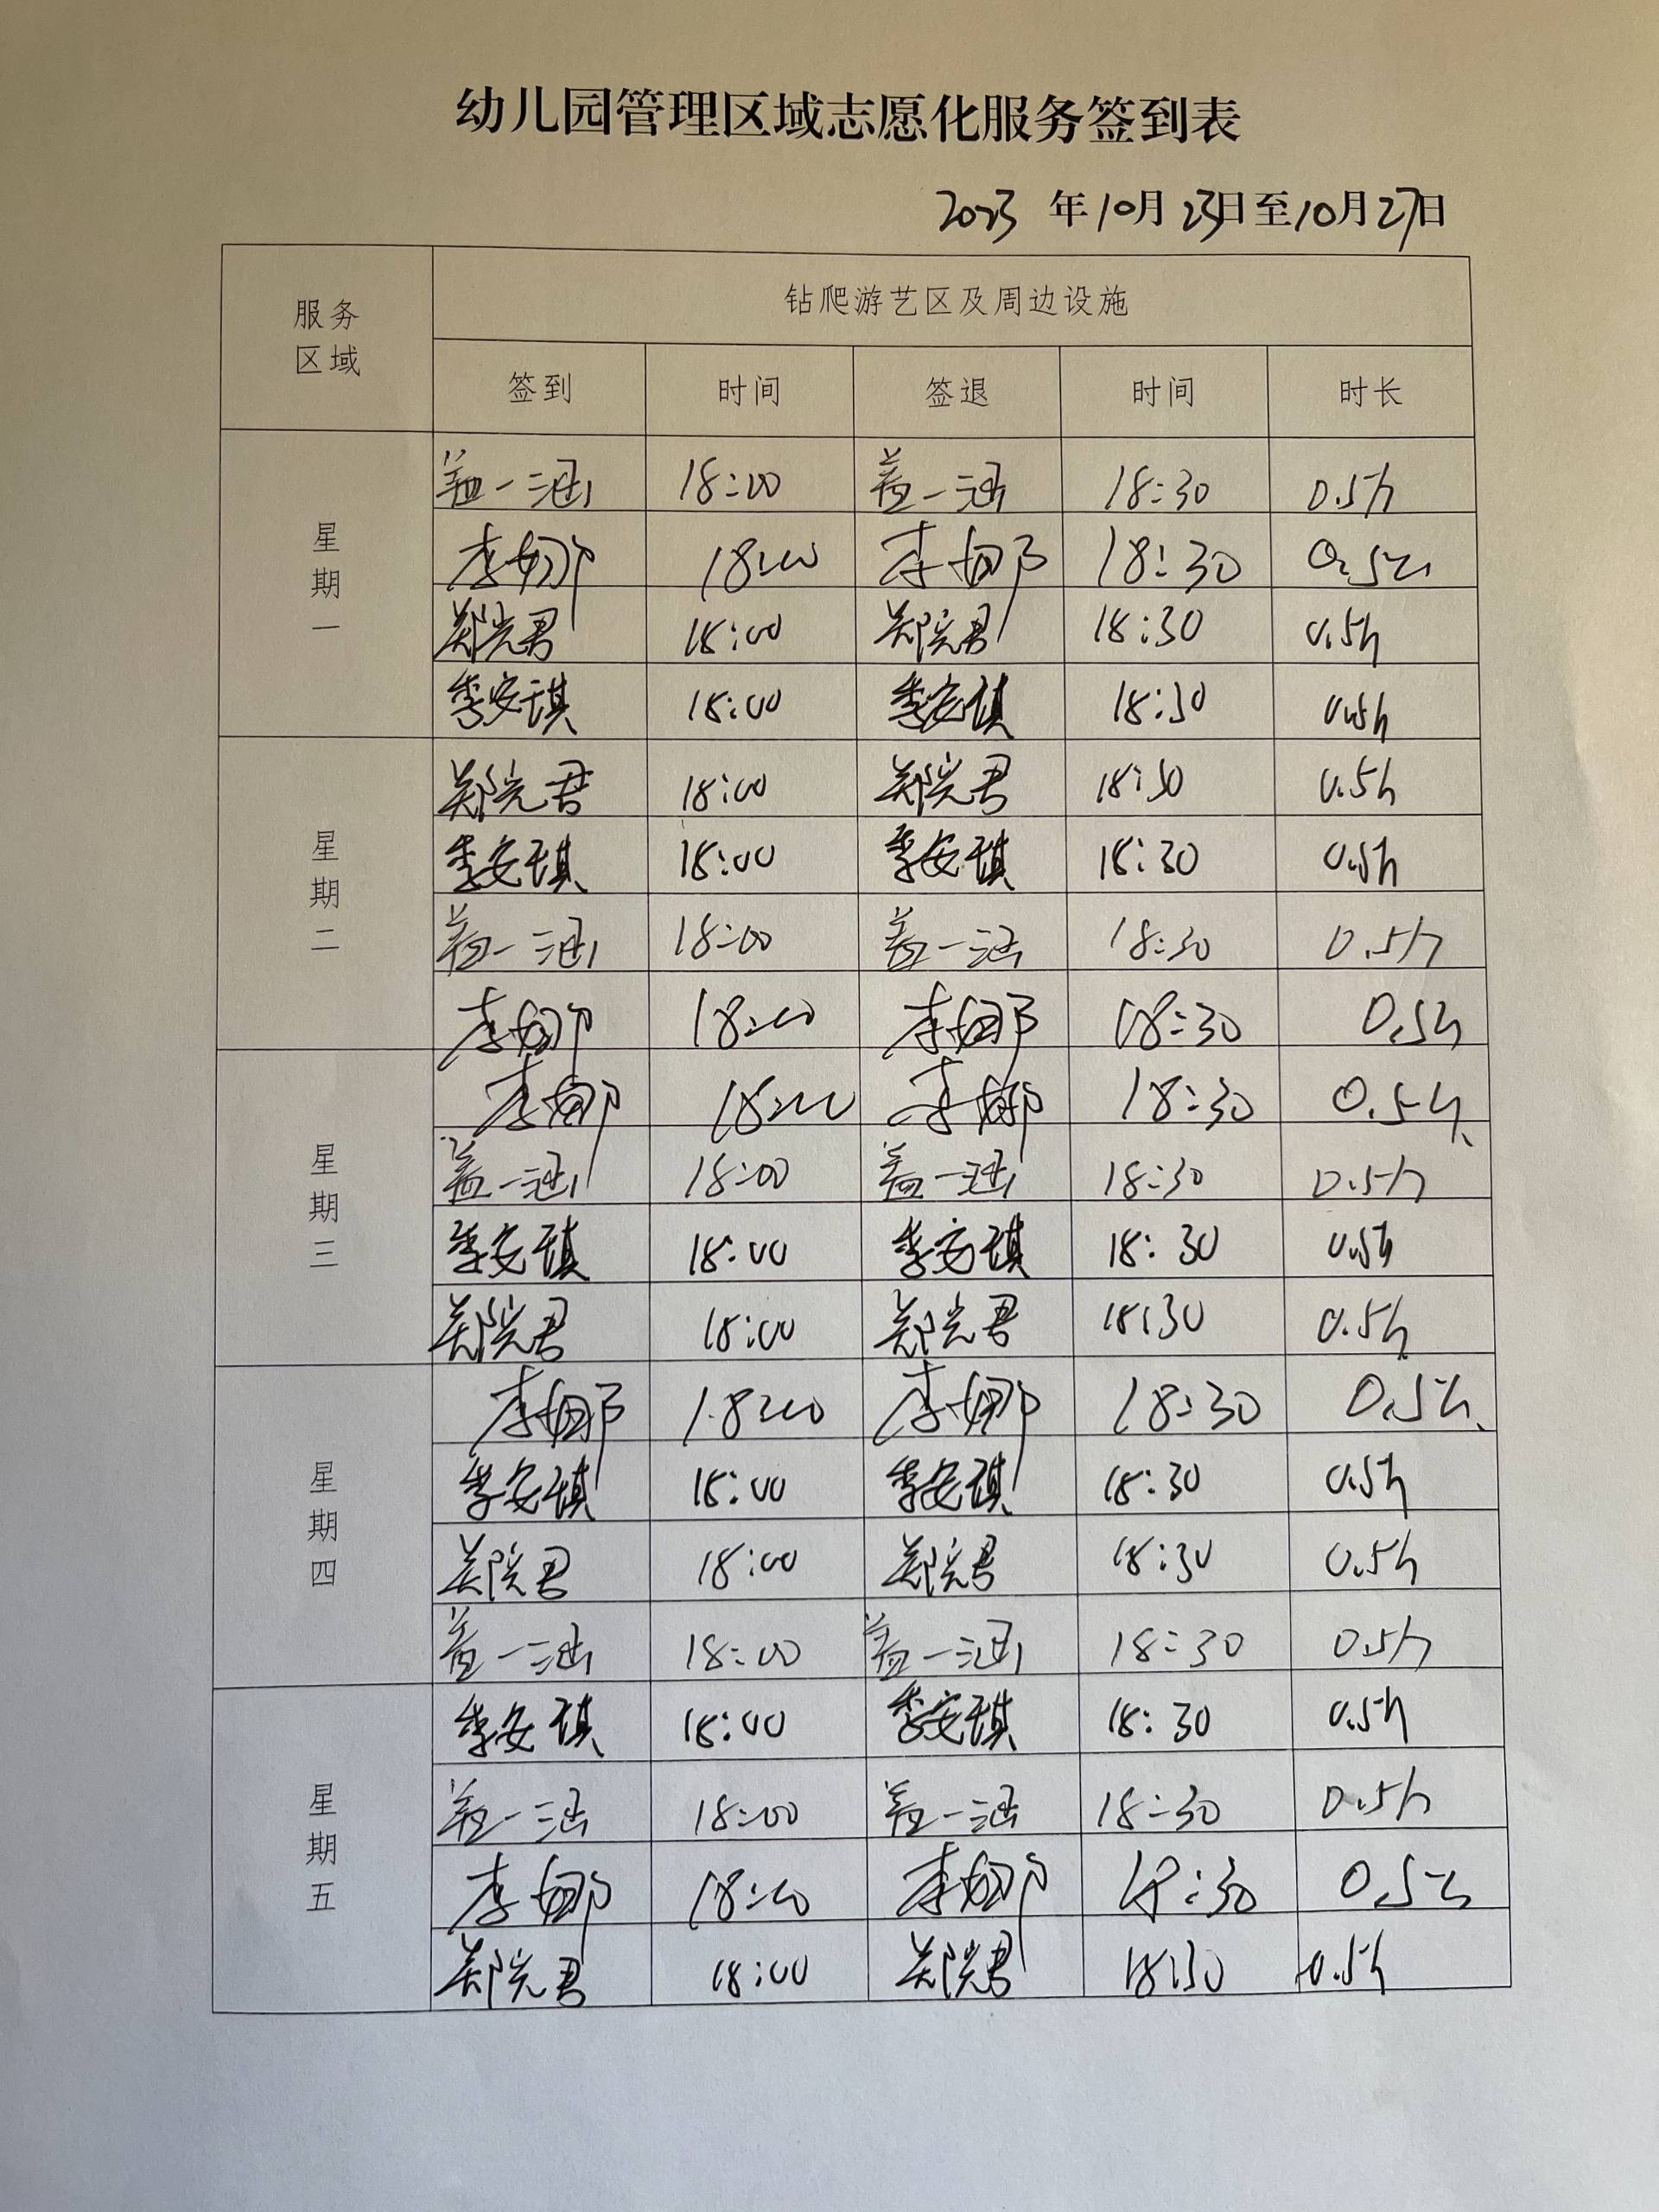 幼儿园管理区域志愿化服务签到表
2023 年10月23日至10月27日
服务区域 钻爬游艺区及周边设施
签到 时间 签退 时间 时长
星期一
盖一涵 18:00 盖一涵 18:30 0.5h
李娜 18:00 李娜 18:30 0.5h
郑院君 18:00 郑院君 18:30 0.5h
李安琪 18:00 李安琪 18:30 0.5h
星期二
郑院君 18:00 郑院君 18:30 0.5h
李安琪 18:00 李安琪 18:30 0.5h
盖一涵 18:00 盖一涵 18:30 0.5h
李娜 18:00 李娜 18:30 0.5h
星期三
李娜 18:00 李娜 18:30 0.5h
盖一涵 18:00 盖一涵 18:30 0.5h
李安琪 18:00 李安琪 18:30 0.5h
郑院君 18:00 郑院君 18:30 0.5h
星期四
李娜 18:00 李娜 18:30 0.5h
李安琪 18:00 李安琪 18:30 0.5h
郑院君 18:00 郑院君 18:30 0.5h
盖一涵 18:00 盖一涵 18:30 0.5h
星期五
李安琪 18:00 李安琪 18:30 0.5h
盖一涵 18:00 盖一涵 18:30 0.5h
李娜 18:00 李娜 18:30 0.5h
郑院君 18:00 郑院君 18:30 0.5h